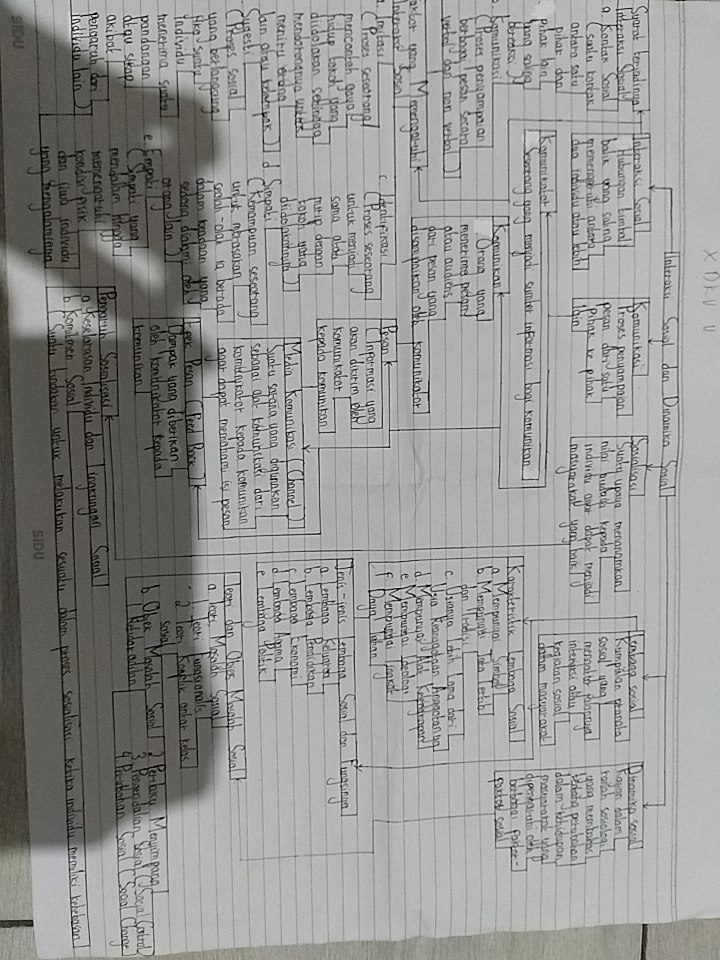 X DKV
Interaksi Sosial dan Dinamika Sosial
Syarat terjadinya
Interaksi Sosial
a. Kontak Sosial
( Suatu kontak
antara satu
pihak dan
pihak lain
yang saling
bereaksi )
b. Komunikasi
( Proses penyampaian
berbagai pesan secara
verbal dan non verbal )
Interaksi Sosial
Hubungan timbal
balik yang saling
memengaruhi antara
dua individu atau lebih
Komunikasi
Proses penyampaian
pesan dari satu
pihak ke pihak
lain
Sosialisasi
Suatu upaya menanamkan
nilai budaya kepada
individu agar dapat menjadi
masyarakat yang baik
Lembaga Sosial
Kumpulan pranata
sosial yang
mengatur jalannya
interaksi atau
kegiatan sosial
dalam masyarakat
Dinamika Sosial
Kajian dalam
ranah sosiologi
yang membahas
tentang perubahan
dalam kehidupan
masyarakat yang
dipengaruhi oleh
berbagai faktor-
faktor sosial
Komunikator
Seseorang yang menjadi sumber informasi bagi komunikan
Komunikan
Orang yang
menerima pesan
atau audiens
dari pesan yang
disampaikan oleh komunikator
Pesan
( Informasi yang
akan dikirim oleh
komunikator
kepada komunikan
Media Komunikasi ( Channel )
Suatu sarana yang digunakan
sebagai alat komunikasi dari
kepada komunikan
agar dapat memahami isi pesan
Efek Pesan ( Feed Back )
Dampak yang diberikan
oleh kepada
komunikan
Faktor yang Memengaruhi
Interaksi Sosial
a. Imitasi
( Proses seseorang
mencontoh gaya
hidup tokoh yang
diidolakan sehingga
mendorongnya untuk
meniru orang
lain atau kelompok )
Sugesti
( Proses sosial
yang berlangsung
jika suatu
individu
menerima suatu
pandangan
atau sikap
akibat
pengaruh dari
individu lain )
c. Identifikasi
( Proses seseorang
untuk menjadi
sama atau
mirip dengan
tokoh yang
diidolakannya )
d. Simpati
( Kemampuan seseorang
untuk merasakan
seolah-olah ia berada
dalam keadaan yang
sedang dialami oleh
orang lain
e. Empati
( Simpati yang
mendalam hingga
memengaruhi
kondisi fisik
dan jiwa individu
yang mengalaminya
Karakteristik Lembaga Sosial
a. Mempunyai Simbol
b. Mempunyai tata tertib
dan tradisi
c. Usianya lebih lama dari
Usia Keanggotaan Anggotanya
d. Mempunyai Alat Kelengkapan
e. Mempunyai Ideologi
f. Mempunyai tingkat
Daya tahan
Jenis-jenis Lembaga Sosial dan fungsinya
a. Lembaga Keluarga
b. Lembaga Pendidikan
c. Lembaga Ekonomi
d. Lembaga Agama
e. Lembaga Politik
Teori dan Objek Masalah Sosial
a. Teori Masalah Sosial
1. Teori Fungsionalis
2. Teori Konflik antar kelas
b. Objek Masalah Sosial
2. Perilaku Menyimpang
3. Pengendalian Sosial ( Social Control )
4. Perubahan Sosial ( Social Change
Sosialisasi
a. Keselarasan Individu dan lingkungan Sosial
b. Komitmen Sosial
( Suatu tindakan untuk melakukan sesuatu dalam proses sosialisasi ketika individu memiliki kebebasan
SIDU
SIDU